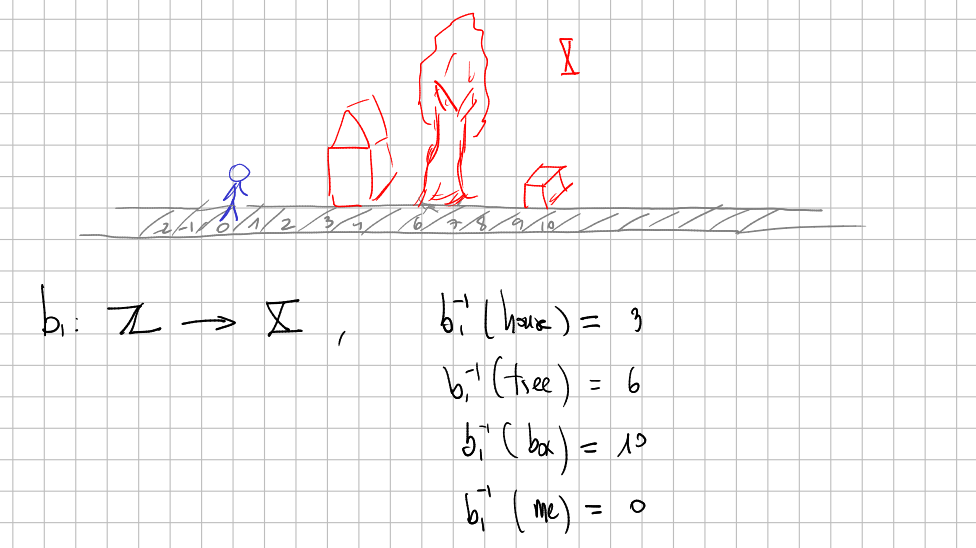 X
-2 -1 0 1 2 3 4 6 7 8 9 10
b₁: ℤ → X , b₁⁻¹(house) = 3
b₁⁻¹(tree) = 6
b₁⁻¹(box) = 10
b₁⁻¹(me) = 0